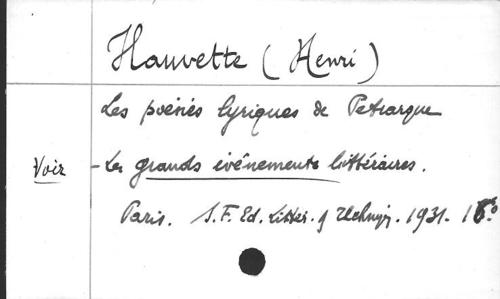 Hauvette (Henri)
Les poésies lyriques de Petrarque
Voir - Les grands événements littéraires.
Paris. S.F. Ed. Littér. & Techniq. 1931.